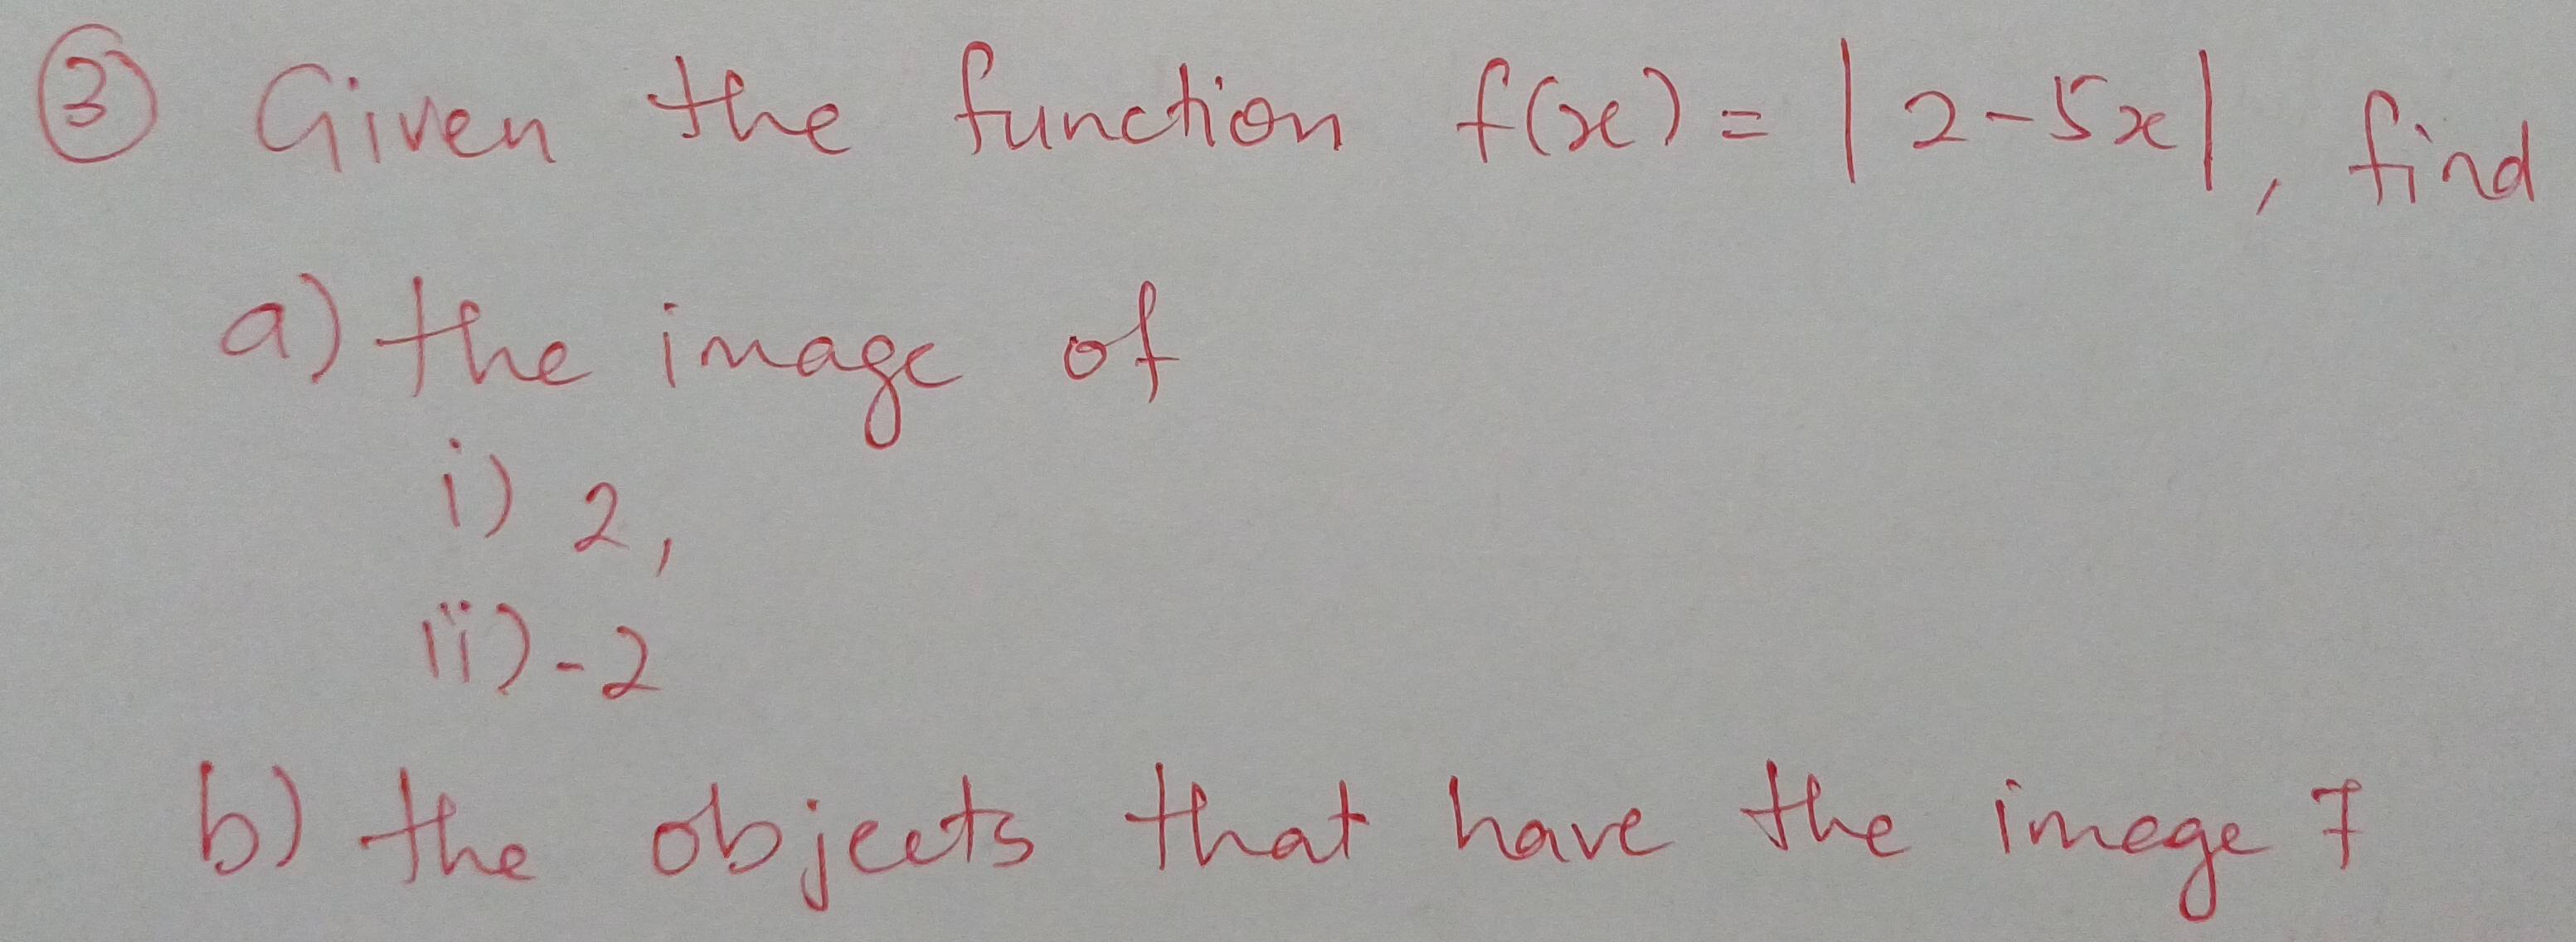 ③ Given the function f(x) = |2-5x|, find
a) the image of
i) 2,
ii) -2
b) the objects that have the image 7